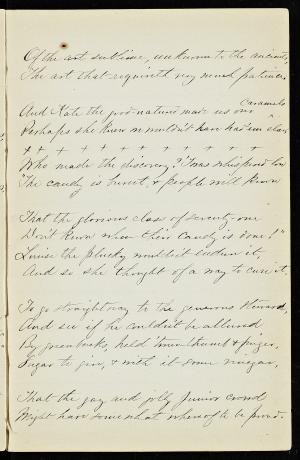 Of the art sublime, unknown to the ancients,
The art that requireth very much patience.
And Kate the good-natured made us our Caramels
Perhaps she knew we wouldn't have had 'em else
+ + + + + + + + + +
Who made the discovery? Twas whispered low
The candy is burnt, & people will know
That the glorious class of seventy-one
Don't know when their candy is done!"
Louise the plucky wouldn't endure it,
And so she thought of a way to cure it,
To go straightway to the generous steward,
And see if he couldn't be allured
By greenbacks, held 'tween thumb & finger,
Sugar to give, & with it some vinegar,
That the gay and jolly Junior crowd
Might have somewhat whereof to be proud.